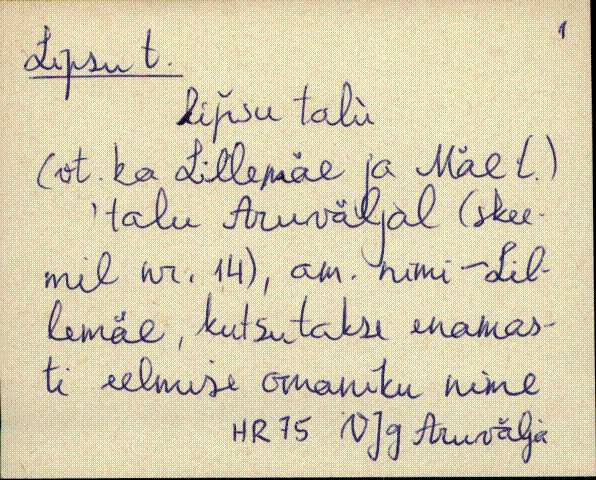 1
Lipsu t.
lip̆su talù
(vt. ka Lillemäe ja Mäe t.)
'talu Aruväljal (skee-
mil nr. 14), am. nimi - Lil-
lemäe, kutsutakse enamas-
ti eelmise omaniku nime
HR 75 VJg Aruvälja